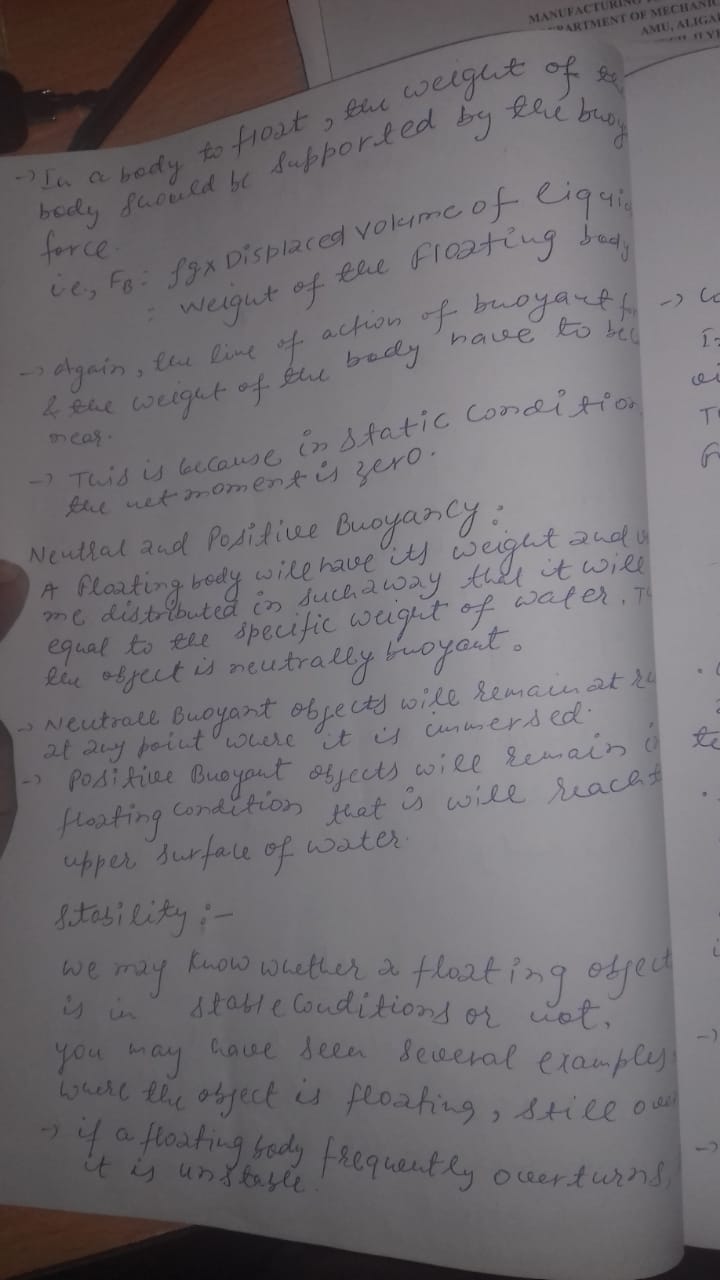 MANUFACTURING
DEPARTMENT OF MECHANI
AMU, ALIGA
-> In a body to float, the weight of
body should be supported by the buoy
force.
i.e., FB = ρg x Displaced volume of liquid
= weight of the floating body
-> Again, the line of action of buoyant
& the weight of the body have to be
near.
-> This is because in static condition
the net moment is zero.
Neutral and Positive Buoyancy:
A floating body will have its weight and
me distributed in such a way that it will
equal to the specific weight of water.
the object is neutrally buoyant.
-> Neutrall Buoyant objects will remain at
at any point where it is immersed.
-> Positive Buoyant objects will remain
floating condition that is will reach
upper surface of water.
Stability :-
we may know whether a floating object
is in stable conditions or not.
you may have seen several examples
where the object is floating, still
-> if a floating body frequently overturns,
it is unstable.